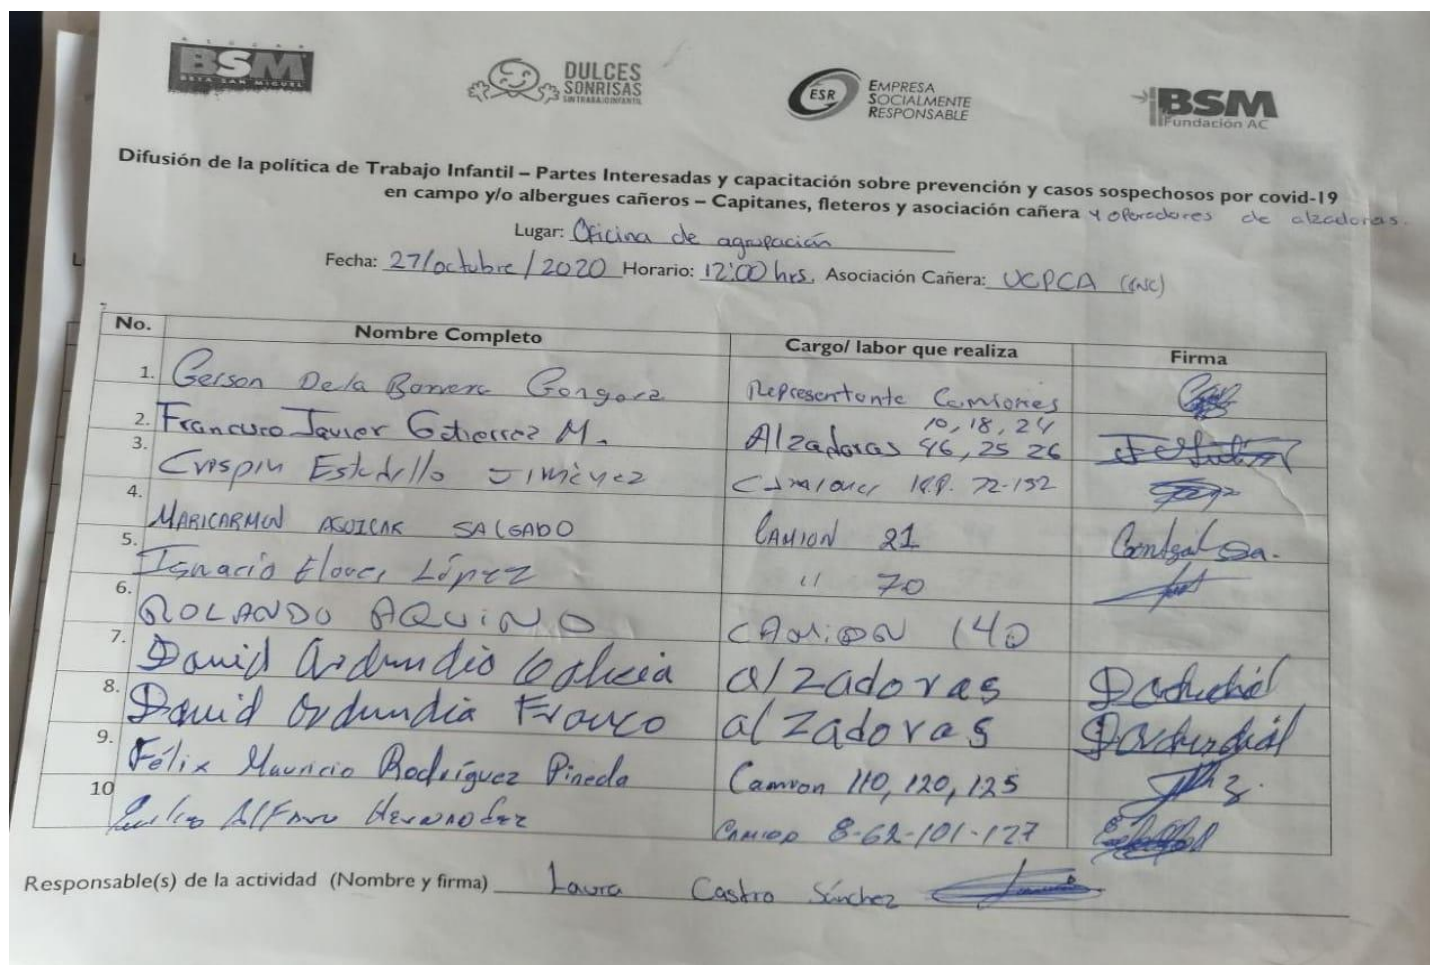 AZUCAR
BSM
BETA SAN MIGUEL
DULCES
SONRISAS
SIN TRABAJO INFANTIL
ESR
EMPRESA
SOCIALMENTE
RESPONSABLE
BSM
Fundación AC
Difusión de la política de Trabajo Infantil – Partes Interesadas y capacitación sobre prevención y casos sospechosos por covid-19
en campo y/o albergues cañeros – Capitanes, fleteros y asociación cañera y operadores de alzadoras.
Lugar: Oficina de agrupación
Fecha: 27/octubre/2020 Horario: 12:00 hrs. Asociación Cañera: UCPCA (CNC)
No. Nombre Completo Cargo/ labor que realiza Firma
1. Gerson De la Barrera Gongora Representante Camiones
2. Francisco Javier Gutierrez M. Alzadoras 10, 18, 24 46, 25 26
3. Crispin Jiménez Camiones 72-132
4. MARICARMEN AGUILAR SALGADO CAMION 21
5. Ignacio Flores López 11 70
6. ROLANDO AQUINO CAMION 140
7. David Ordundia alzadoras
8. David Ordundia Franco alzadoras
9. Félix Mauricio Rodríguez Pineda Camion 110, 120, 125
10 Alfaro Hernandez CAMION 8-62-101-127
Responsable(s) de la actividad (Nombre y firma) Laura Castro Sánchez